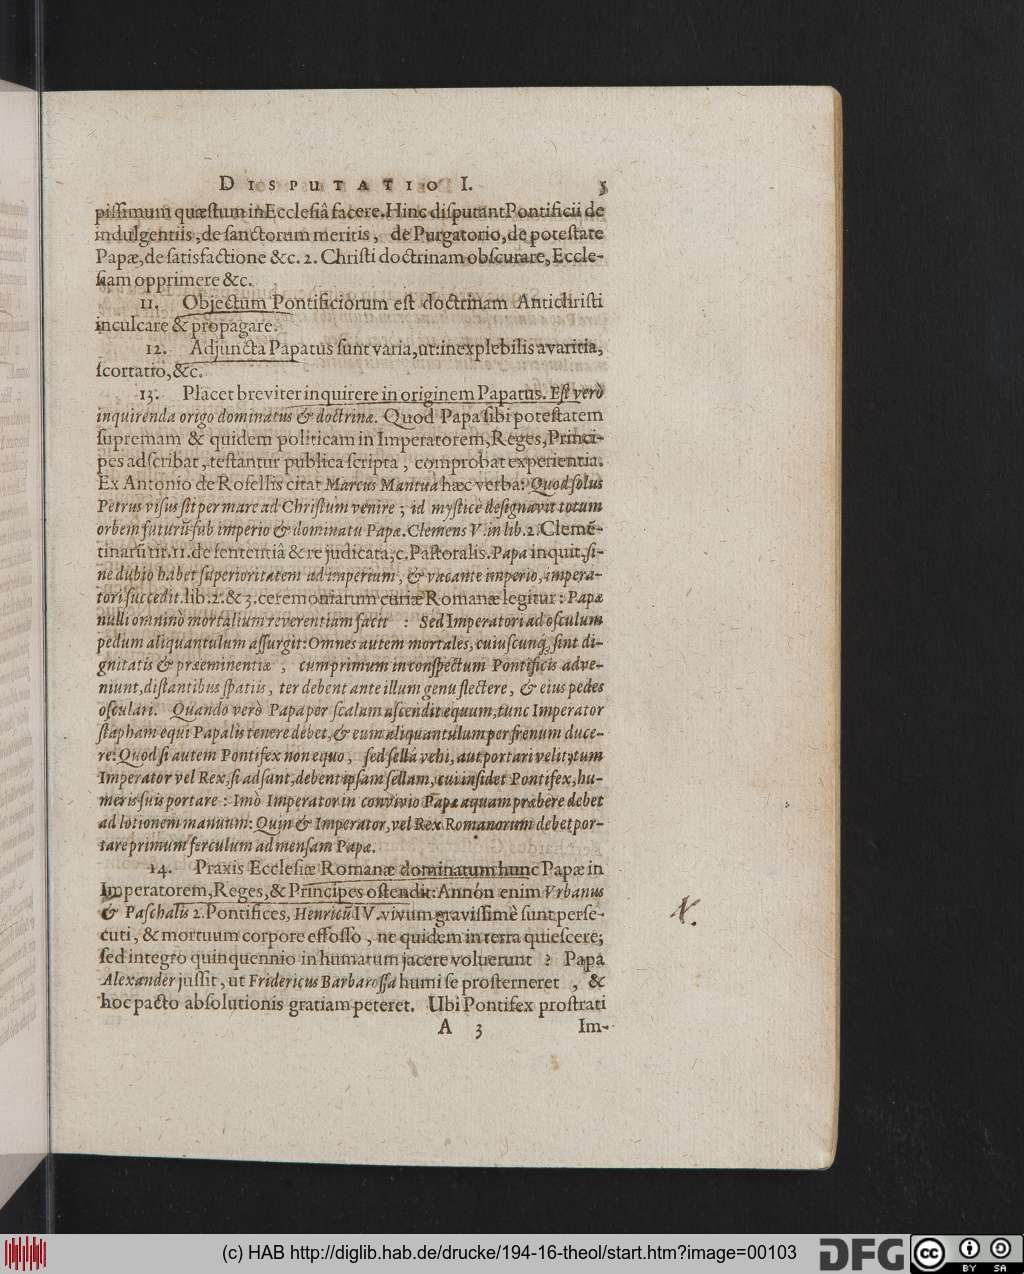 DISPUTATIO I. 5
pissimum quæstum in Ecclesiâ facere. Hinc disputant Pontificii de
indulgentiis, de sanctorum meritis, de Purgatorio, de potestate
Papæ, de satisfactione &c. 2. Christi doctrinam obscurare, Eccle-
siam opprimere &c.
11. Objectum Pontificiorum est doctrinam Antichristi
inculcare & propagare.
12. Adjuncta Papatus sunt varia, ut: inexplebilis avaritia,
scortatio, &c.
13. Placet breviter inquirere in originem Papatus. Est verò
inquirenda origo dominatus & doctrinæ. Quod Papa sibi potestatem
supremam & quidem politicam in Imperatorem, Reges, Princi-
pes adscribat, testantur publica scripta, comprobat experientia.
Ex Antonio de Rosellis citat Marcus Mantua hæc verba: Quod solus
Petrus visus sit per mare ad Christum venire; id mysticè designavit totum
orbem futurũ sub imperio & dominatu Papæ. Clemens V. in lib. 2. Clemẽ-
tinarũ tit. 11. de sententiâ & re judicata, c. Pastoralis. Papa inquit, si-
ne dubio habet superioritatem ad imperium, & vacante imperio, impera-
tori succedit. lib. 2. & 3. ceremoniarum curiæ Romanæ legitur: Papa
nulli omninò mortalium reverentiam facit : Sed Imperatori ad osculum
pedum aliquantulum assurgit: Omnes autem mortales, cuiuscunq; sint di-
gnitatis & præeminentiæ, cum primum in conspectum Pontificis adve-
niunt, distantibus spatiis, ter debent ante illum genu flectere, & eius pedes
osculari. Quando verò Papa per scalam ascendit equum, tunc Imperator
stapham equi Papalis tenere debet, & eum aliquantulum per frenum duce-
re: Quod si autem Pontifex non equo, sed sella vehi, aut portari velit; tum
Imperator vel Rex, si adsunt, debent ipsam sellam, cui insidet Pontifex, hu-
meris suis portare: Imò Imperator in convivio Papæ aquam præbere debet
ad lotionem manuum: Quin & Imperator, vel Rex Romanorum debet por-
tare primum ferculum ad mensam Papæ.
14. Praxis Ecclesiæ Romanæ dominatum hunc Papæ in
Imperatorem, Reges, & Principes ostendit: Annón enim Vrbanus
& Paschalis 2. Pontifices, Henricũ IV. vivum gravissimè sunt perse-
cuti, & mortuum corpore effosso, ne quidem in terra quiescere;
sed integro quinquennio in humatum jacere voluerunt ? Papa
Alexander jussit, ut Fridericus Barbarossa humi se prosterneret, &
hoc pacto absolutionis gratiam peteret. Ubi Pontifex prostrati
A 3 Im-
(c) HAB http://diglib.hab.de/drucke/194-16-theol/start.htm?image=00103
DFG
cc BY SA